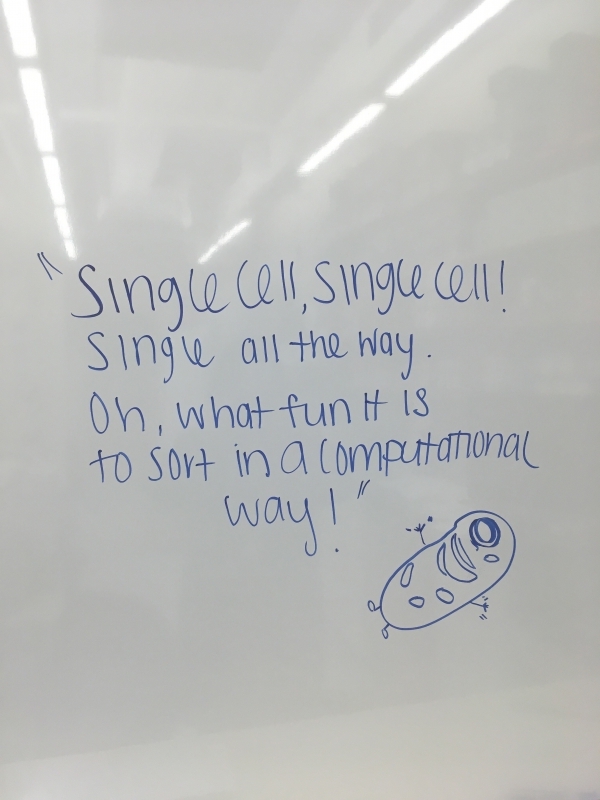 "Single cell, single cell!
Single all the way.
Oh, what fun it is
to sort in a computational
way!"